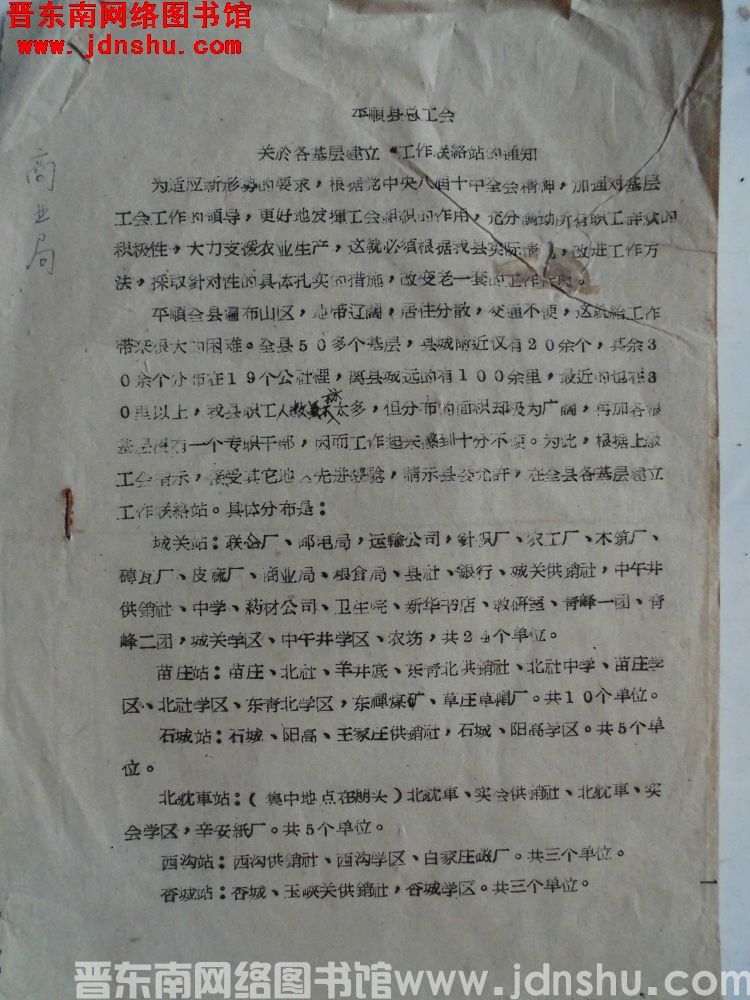 晋东南网络图书馆
www.jdnshu.com
商业局
平順县总工会
关於各基层建立“工作联絡站的通知
为适应新形势的要求，根据党中央八届十中全会精神，加通对基层
工会工作的領导，更好地发揮工会組织的作用，充分調动所有职工群众的
积极性，大力支援农业生产，这就必須根据我县实际情况，改进工作方
法，採取針对性的具体扎实的措施，改变老一套的工作作风。
平順全县遍布山区，地带辽闊，居住分散，交通不便，这就給工作
带来很大的困难。全县50多个基层，县城附近仅有20余个，其余3
0余个分布在19个公社裡，离县城远的有100余里，最近的也在3
0里以上，我县职工人数虽不太多，但分布的面积却极为广闊，再加各根
基层没有一个专职干部，因而工作起来感到十分不便。为此，根据上級
工会指示，接受其它地区先进经驗，請示县委允許，在全县各基层建立
工作联絡站。具体分布是：
城关站：联合厂、邮电局，运輸公司，針织厂、农工厂、木筑厂、
磚瓦厂、皮蔴厂、商业局、粮食局、县社、銀行、城关供銷社，中午井
供銷社、中学、药材公司、卫生院、新华书店、教研室、青峰一团、青
峰二团，城关学区、中午井学区、农坊，共24个单位。
苗庄站：苗庄、北社、羊井底、东青北供銷社、北社中学、苗庄学
区、北社学区、东青北学区，东禪煤矿、草庄草帽厂。共10个单位。
石城站：石城、阳高、王家庄供銷社，石城、阳高学区。共5个单
位。
北耽車站：（集中地点在朋头）北耽車、实会供銷社、北耽車、实
会学区，辛安紙厂。共5个单位。
西沟站：西沟供銷社、西沟学区、白家庄 厂。共三个单位。
杏城站：杏城、玉峽关供銷社，杏城学区。共三个单位。
晋东南网络图书馆www.jdnshu.com